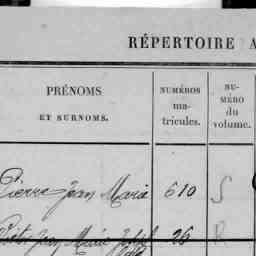 RÉPERTOIRE A
PRÉNOMS
ET SURNOMS.
NUMÉROS
ma-
tricules.
NU-
MÉRO
du
volume.
Pierre Jean Marie 610 S
Jean Marie 26 R